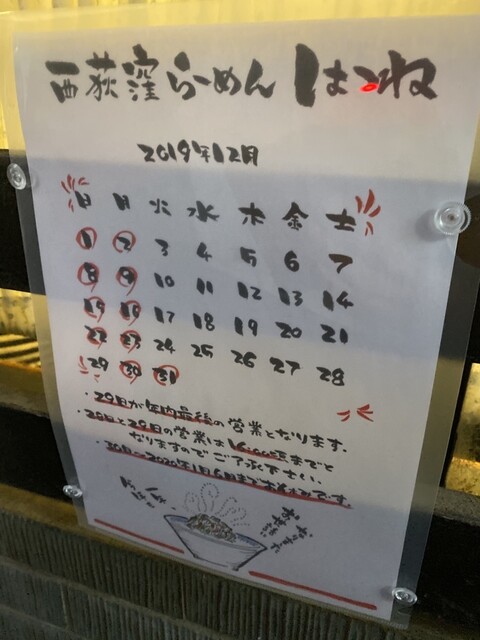 西荻窪らーめん はつね
2019年12月
日 月 火 水 木 金 土
1 2 3 4 5 6 7
8 9 10 11 12 13 14
15 16 17 18 19 20 21
22 23 24 25 26 27 28
29 30 31
・29日が年内最後の営業となります。
・28日と29日の営業は
までと
なりますのでご了承下さい。
・30日〜2020年1月6日までお休みです。